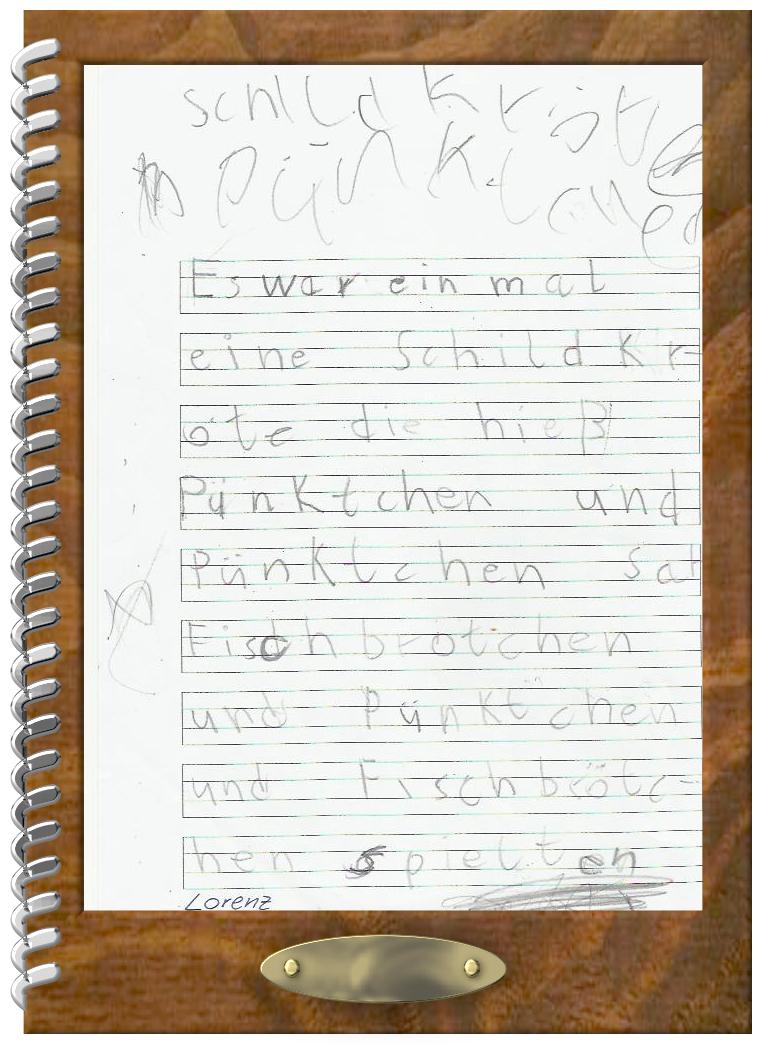 schildkröte
Pünktchen
Es war ein mal
eine Schildkr-
öte die hieß
Pünktchen und
Pünktchen sah
Fischbrötchen
und Pünktchen
und Fischbrötc-
hen spielten
Lorenz